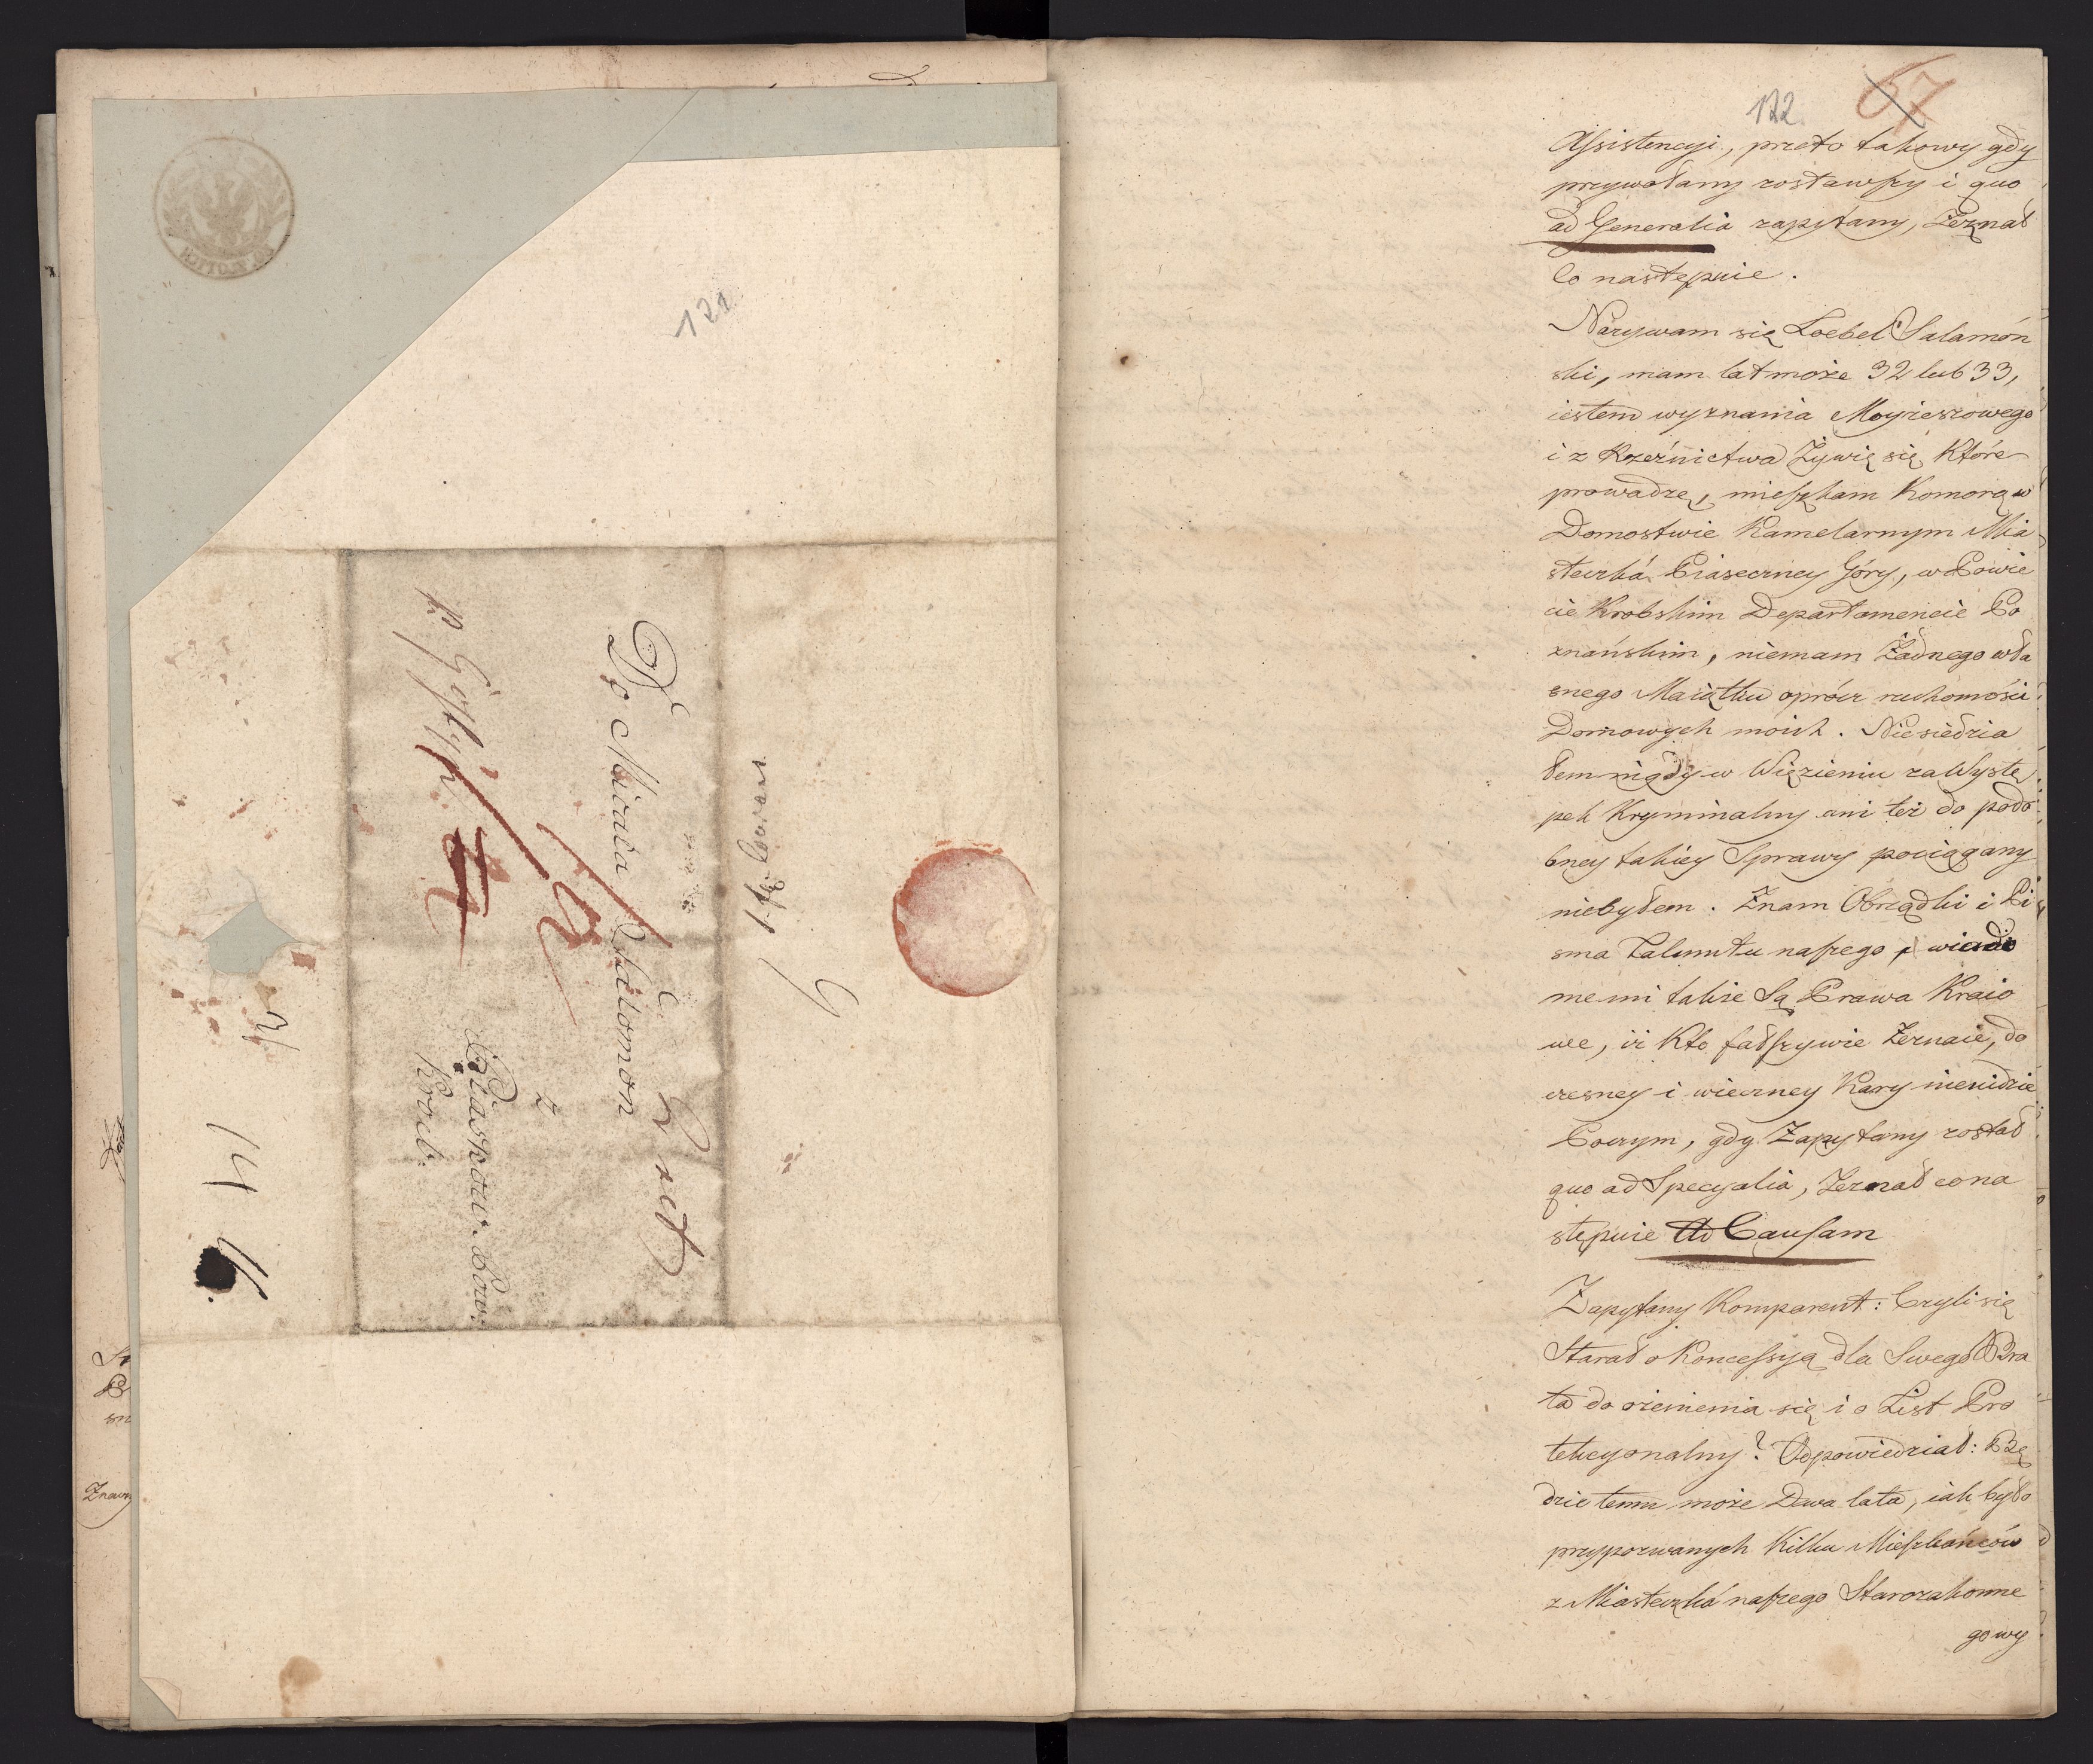 121
Do Micała Salomon
z
Piaskow. Pow.
Kroeb.
p. Gostyń
9
21
14
122
67
Assistencyi, przeto takowy gdy
przywołany zostawszy i quo
ad Generalia zapytany, Zeznał
Co następuie.
Nazywam się Loebel Salamoń
ski, mam lat może 32 lub 33,
iestem wyznania Moyżeszowego
i z Rzeźnictwa Żywię się Które
prowadzę, mieszkam Komorą w
Domostwie Kamelarnym Mia
steczka Piaseczney Góry, w Powie
cie Krobskim Departamencie Po
znańskim, niemam Żadnego wła
snego Maiątku oprócz ruchomości
Domowych moich. Niesiedzia
łem nigdy w Więzieniu za Wystę
pek Kryminalny ani też do podo
bney takiey Sprawy pociągany
niebyłem. Znam Obrządki i Pi
sma Talmutu naszego, wiado
me mi także Są Prawa Kraio
we, iż Kto fałszywie Zeznaie, do
czesney i wieczney Kary nieuidzie
Poczym, gdy Zapytany został
quo ad Specyalia, Zeznał co na
stępuie Ad Causam
Zapytany Komparent: Czyli się
Starał o Koncessyą dla Swego Bra
ta do ożenienia się i o List Pro
tekcyonalny? Odpowiedział: Bę
dzie temu może Dwa lata, iak było
przypozwanych Kilku Mieszkańców
z Miasteczka naszego Starozakonne
go wy